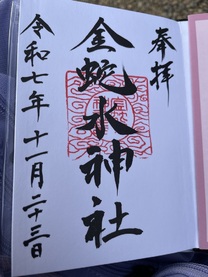 奉拝
金蛇水神社
令和七年十一月二十三日